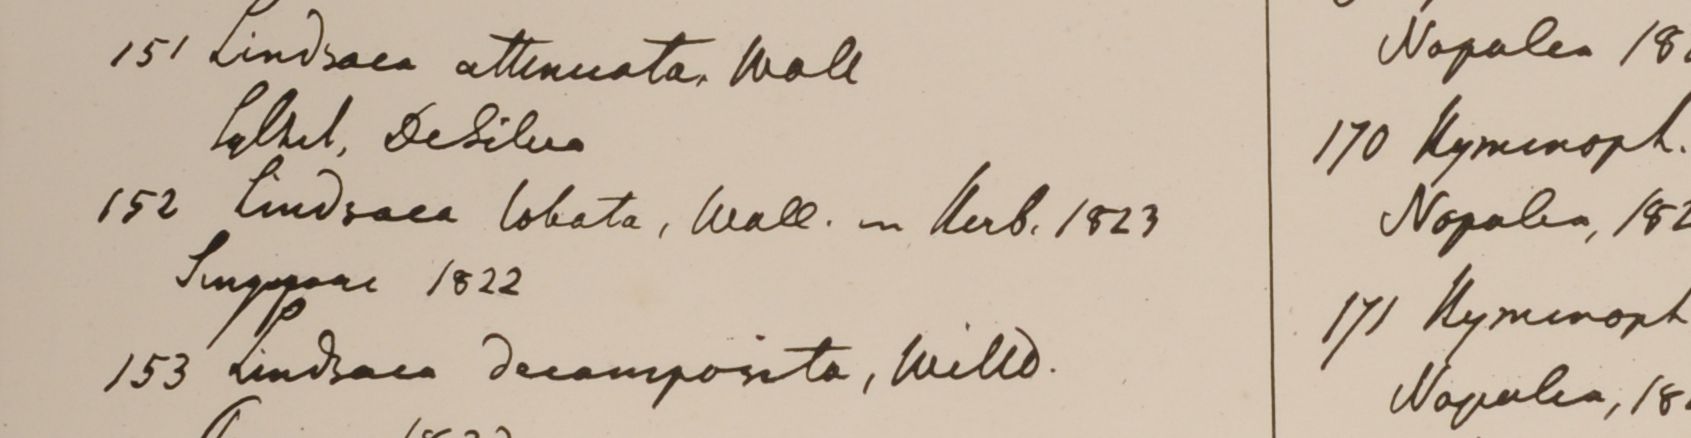 151 Lindsaea attenuata, Wall
Sylhet, DeSilva
152 Lindsaea lobata, Wall. in Herb. 1823
Singapore 1822
153 Lindsaea decomposita, Willd.
Napalea 18
170 Hymenoph.
Napalea, 182
171 Hymenoph
Napalea, 18